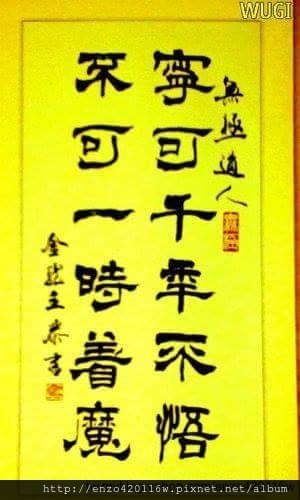 WUGI
無極道人
寧可千年不悟
不可一時着魔
http://enzo420116w.pixnet.net/album